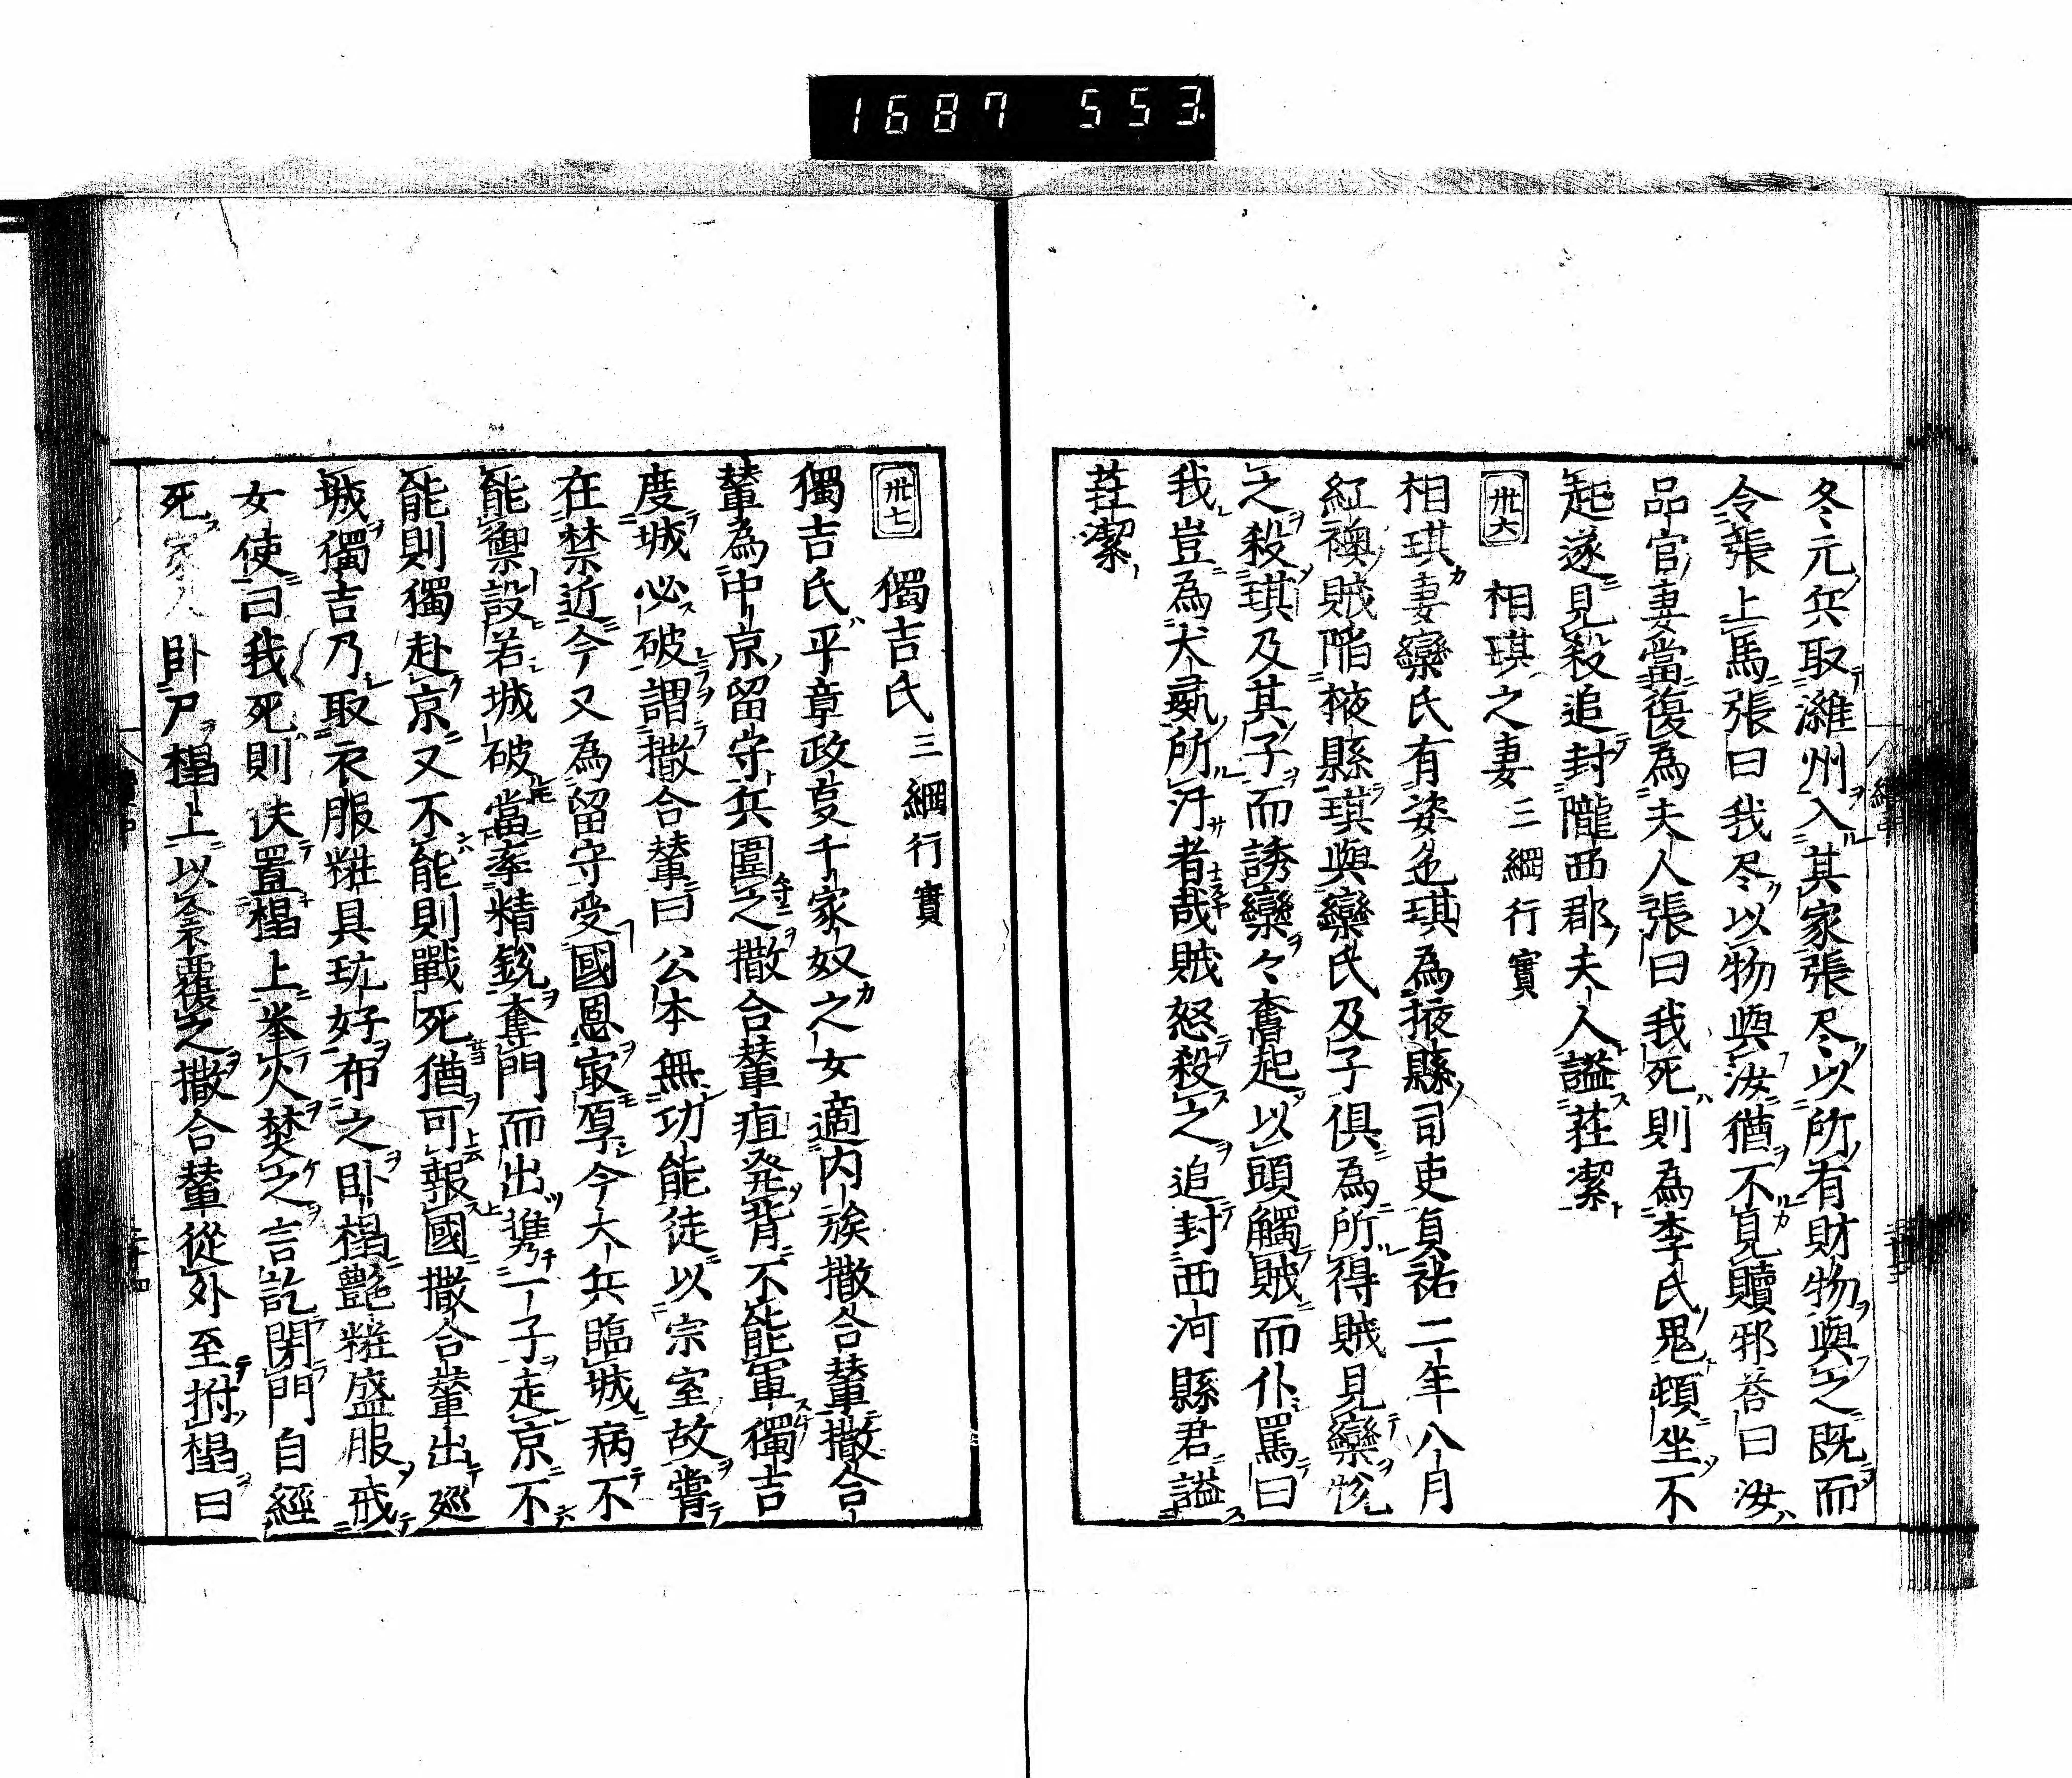 1687 553
冬元兵取濰州入其家張尽以所有財物與之既而
令張上馬張曰我尽以物與汝猶不見贖邪荅曰汝
品官妻當復為夫人張曰我死則為李氏鬼頓坐不
起遂見殺追封隴西郡夫人謚莊潔
卅六 相琪之妻 三綱行實
相琪妻欒氏有姿色琪為掖縣司吏貞祐二年八月
紅襖賊陥掖縣琪與欒氏及子俱為所得賊見欒悅
之殺琪及其子而誘欒々奮起以頭觸賊而仆罵曰
我豈為犬彘所汙者哉賊怒殺之追封西河縣君謚
莊潔
卅七 獨吉氏 三綱行實
獨吉氏平章政叓千家奴之女適内族撒合輦撒合
輦為中京留守兵圍之撒合輦疽発背不能軍獨吉
度城必破謂撒合輦曰公本無功能徒以宗室故嘗
在禁近今又為留守受國恩㝡厚今大兵臨城病不
能禦設若城破當率精銳奪門而出携一子走京不
能則獨赴京又不能則戰死猶可報國撒合輦出廵
城獨吉乃取衣服粧具玩好布之卧榻艶粧盛服戒
女使曰我死則伕置榻上挙火焚之言訖閉門自經
死家人卧尸榻上以衾覆之撒合輦從外至拊榻曰